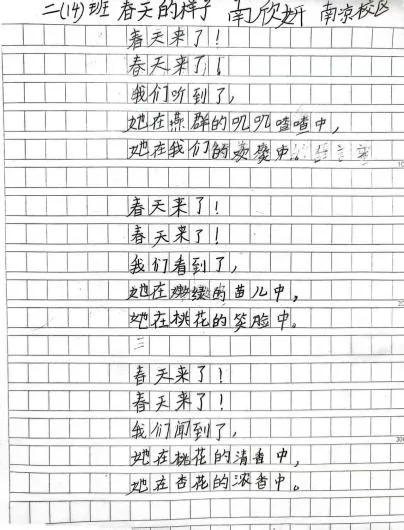 二(14)班 春天的样子 南欣妍 南凉校区
春天来了！
春天来了！
我们听到了，
她在燕群的叽叽喳喳中，
她在我们的 中。
春天来了！
春天来了！
我们看到了，
她在嫩绿的苗儿中，
她在桃花的笑脸中。
三
春天来了！
春天来了！
我们闻到了，
她在桃花的清香中，
她在杏花的浓香中。